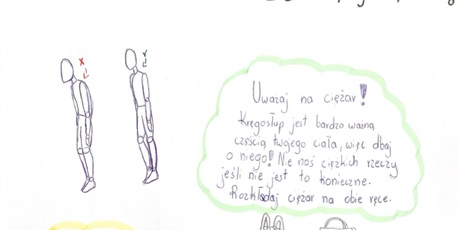 Uważaj na ciężar!
Kręgosłup jest bardzo ważną
częścią twojego ciała, więc dbaj
o niego! Nie noś ciężkich rzeczy
jeśli nie jest to konieczne.
Rozkładaj ciężar na obie ręce.